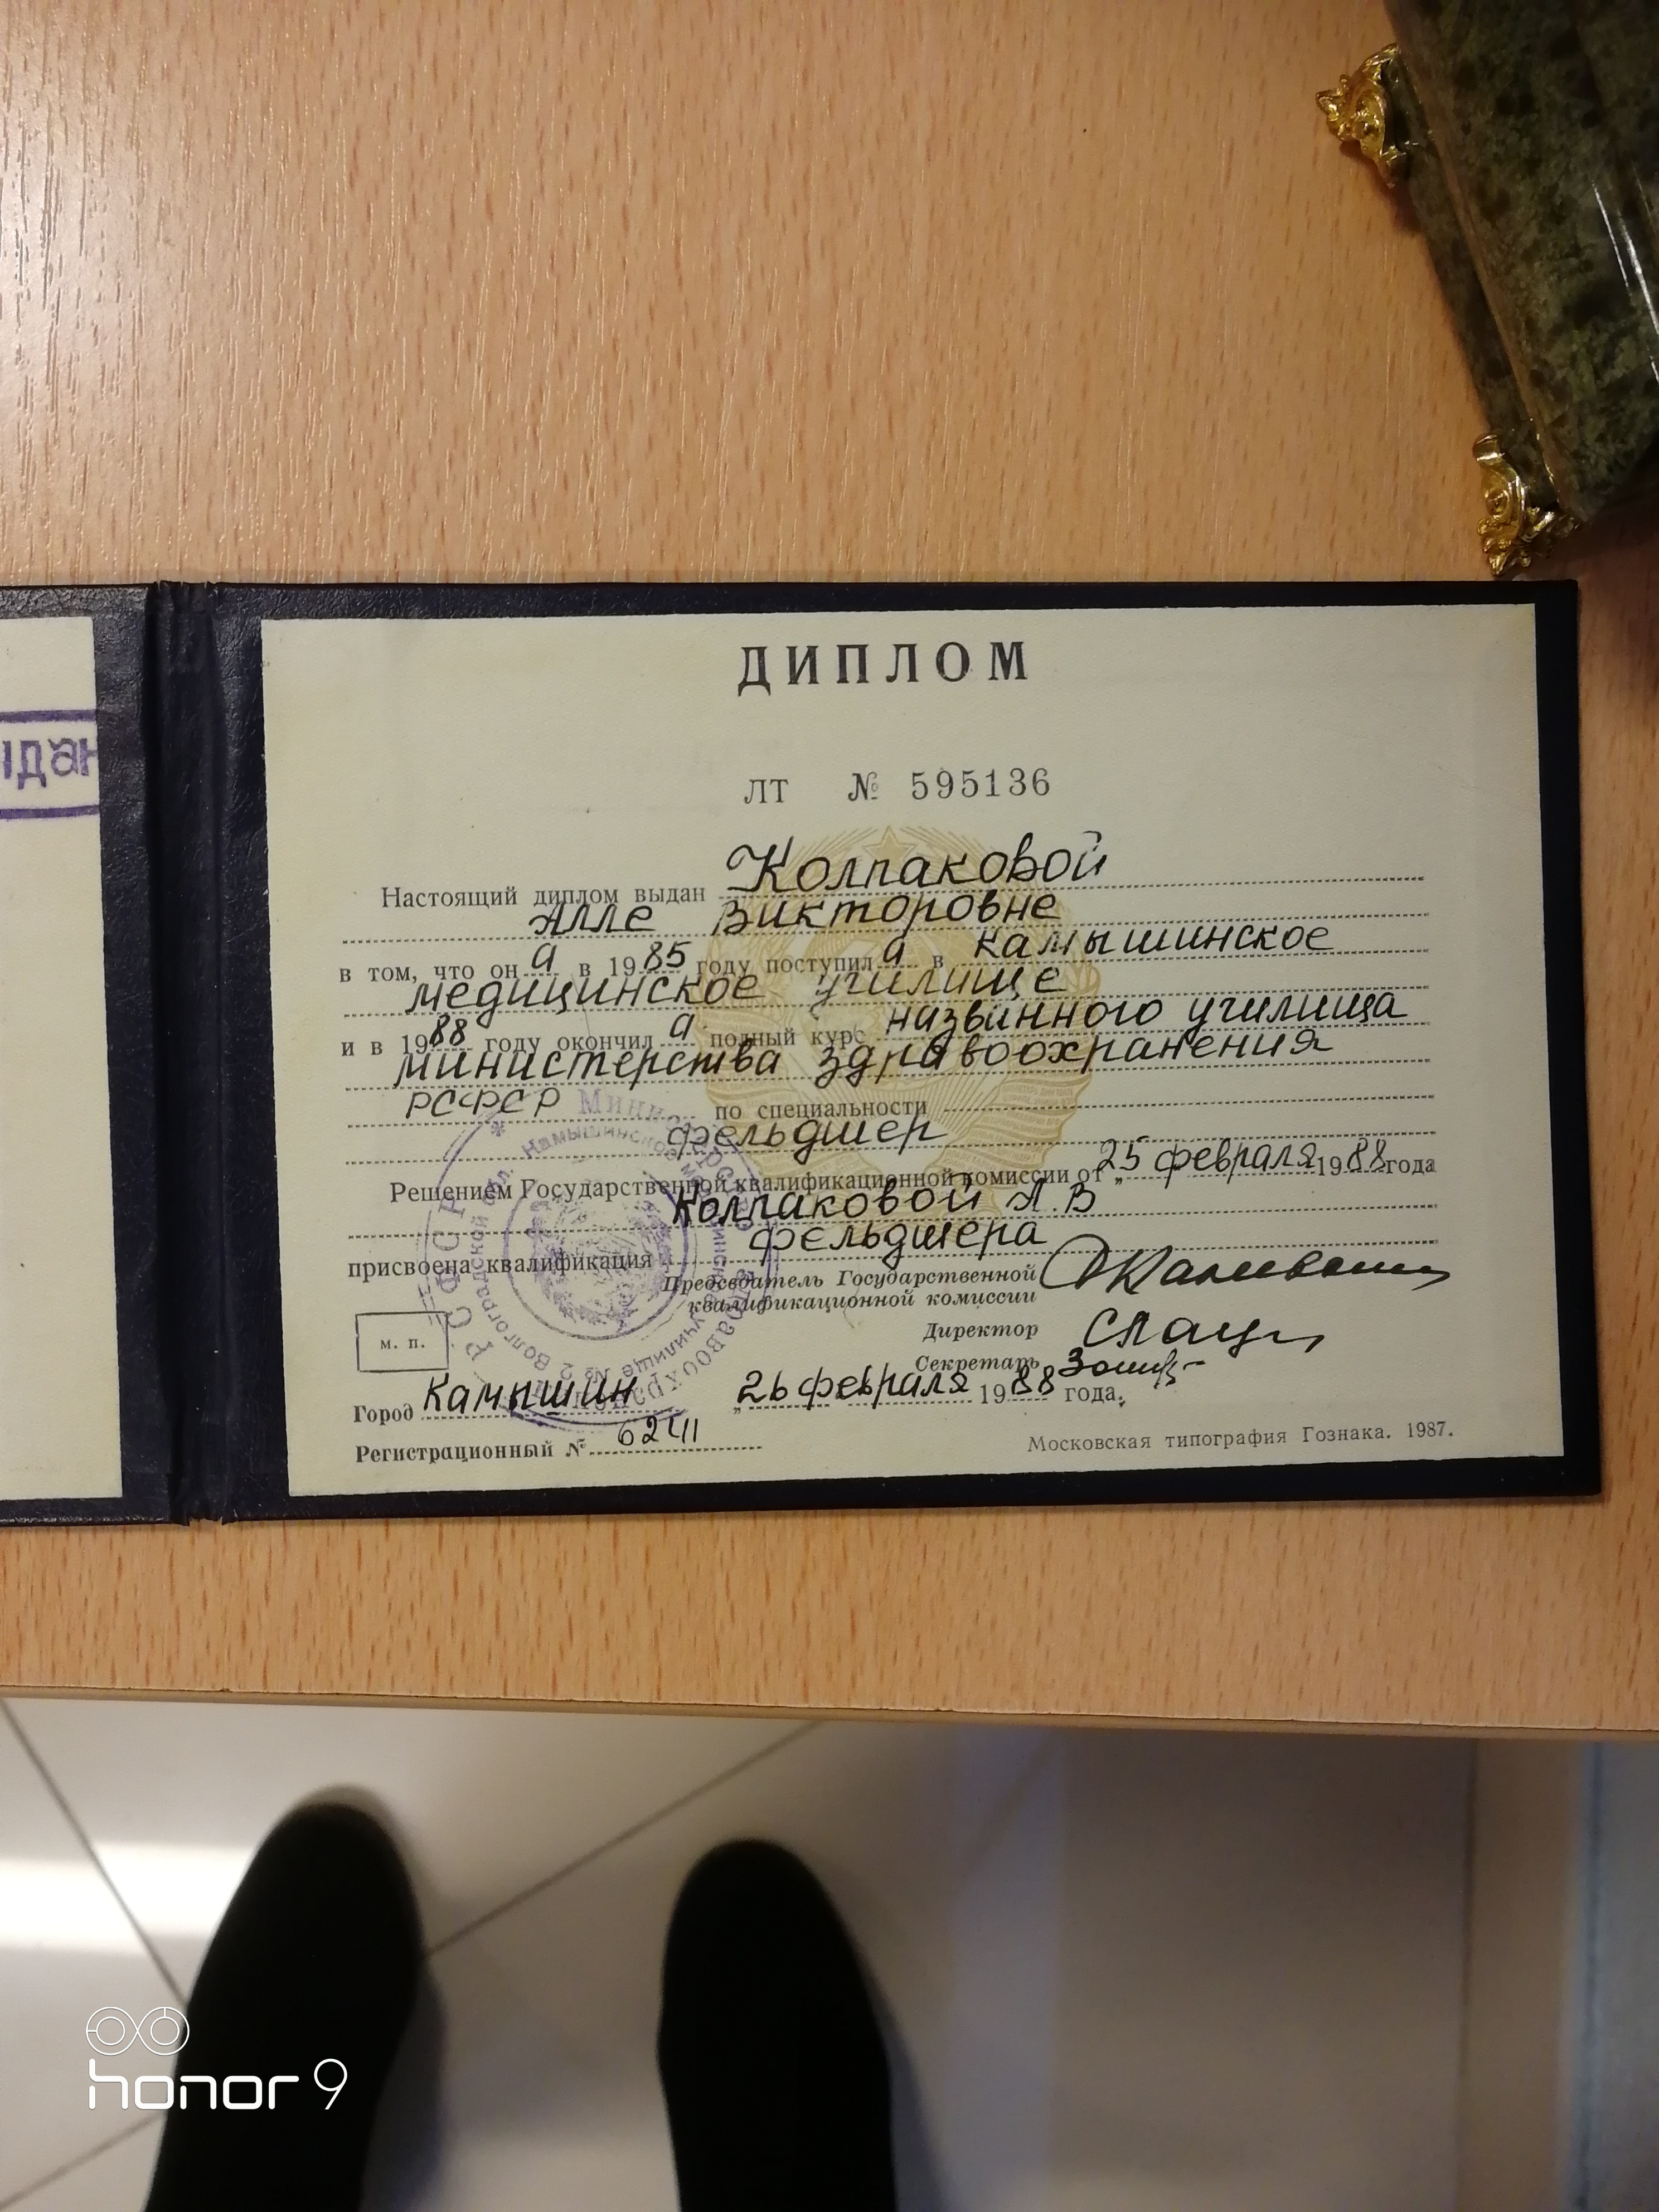 ДИПЛОМ
ЛТ № 595136
Настоящий диплом выдан Колпаковой
Алле Викторовне
в том, что он а в 1985 году поступил а в Камышинское
медицинское училище
и в 1988 году окончил а полный курс названного училища
министерства здравоохранения
РСФСР по специальности
фельдшер
Решением Государственной квалификационной комиссии от „25 февраля 1988 года
Колпаковой А.В
присвоена квалификация фельдшера
Председатель Государственной
квалификационной комиссии
Директор
Секретарь
м. п.
Город Камышин „26 февраля 1988 года.
Регистрационный № 6241
Московская типография Гознака. 1987.
honor 9